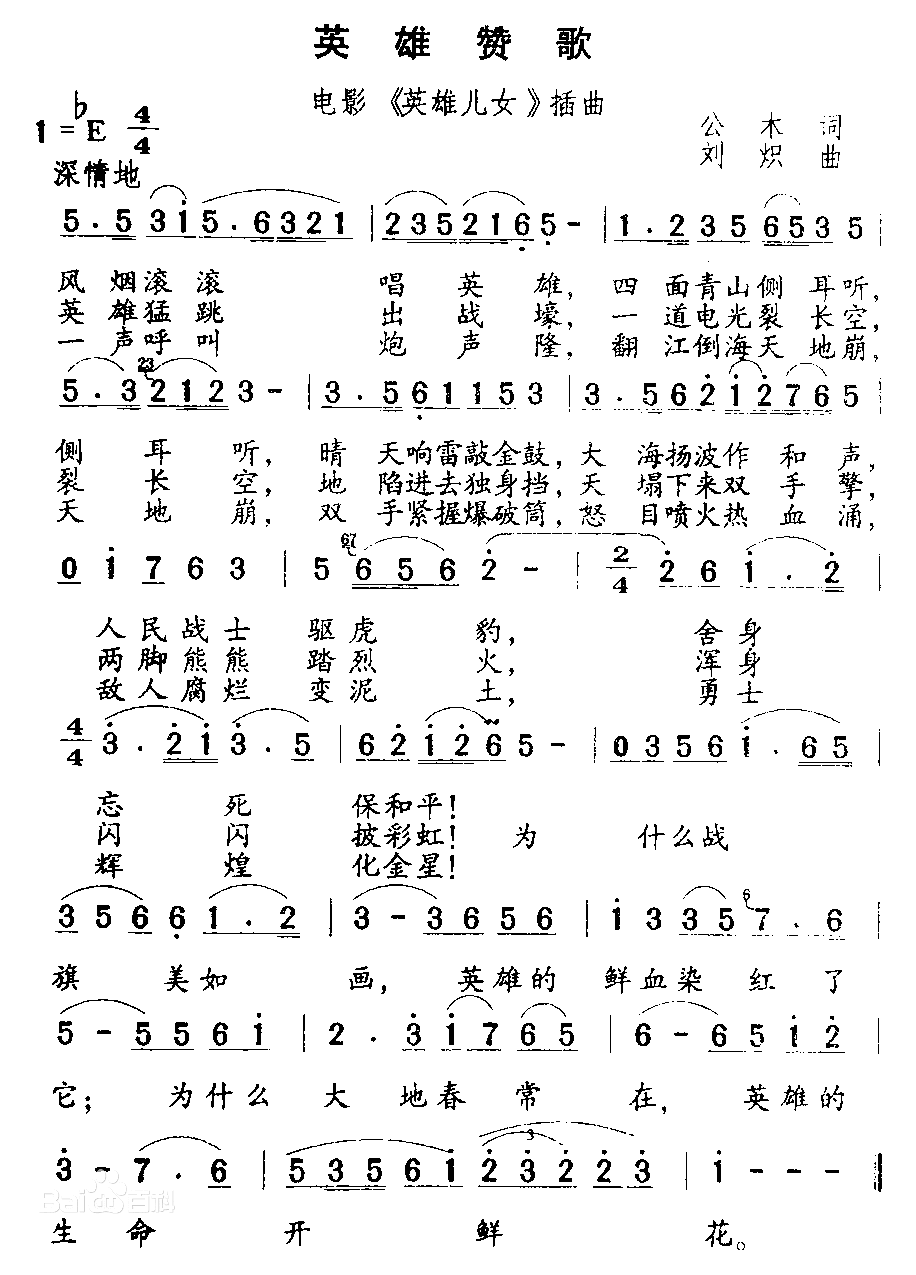 英雄赞歌
电影《英雄儿女》插曲
1=♭E 4/4
公木词
刘炽曲
深情地
5.5 3i 5.6321 | 235 2165 - | 1.235 6535 |
风烟滚滚 唱英雄，四面青山侧耳听，
英雄猛跳 出战壕，一道电光裂长空，
一声呼叫 炮声隆，翻江倒海天地崩，
23
5.32123 - | 3.561153 | 3.562i2765 |
侧耳听，晴天响雷敲金鼓，大海扬波作和声，
裂长空，地陷进去独身挡，天塌下来双手擎，
天地崩，双手紧握爆破筒，怒目喷火热血涌，
67
0i763 | 5 656 2 - | 2/4 26i.2 |
人民战士驱虎豹，舍身
两脚熊熊踏烈火，浑身
敌人腐烂变泥土，勇士
4/4 3.2i3.5 | 62i265 - | 0356i.65 |
忘死保和平！
闪闪披彩虹！为什么战
辉煌化金星！
6
35661.2 | 3 - 3656 | i3357.6 |
旗美如画，英雄的鲜血染红了
5 - 556i | 2.3i765 | 6 - 65i2 |
它；为什么大地春常在，英雄的
3
3 - 7.6 | 5356i23223 | i - - - ‖
生命开鲜花。
Bai百科